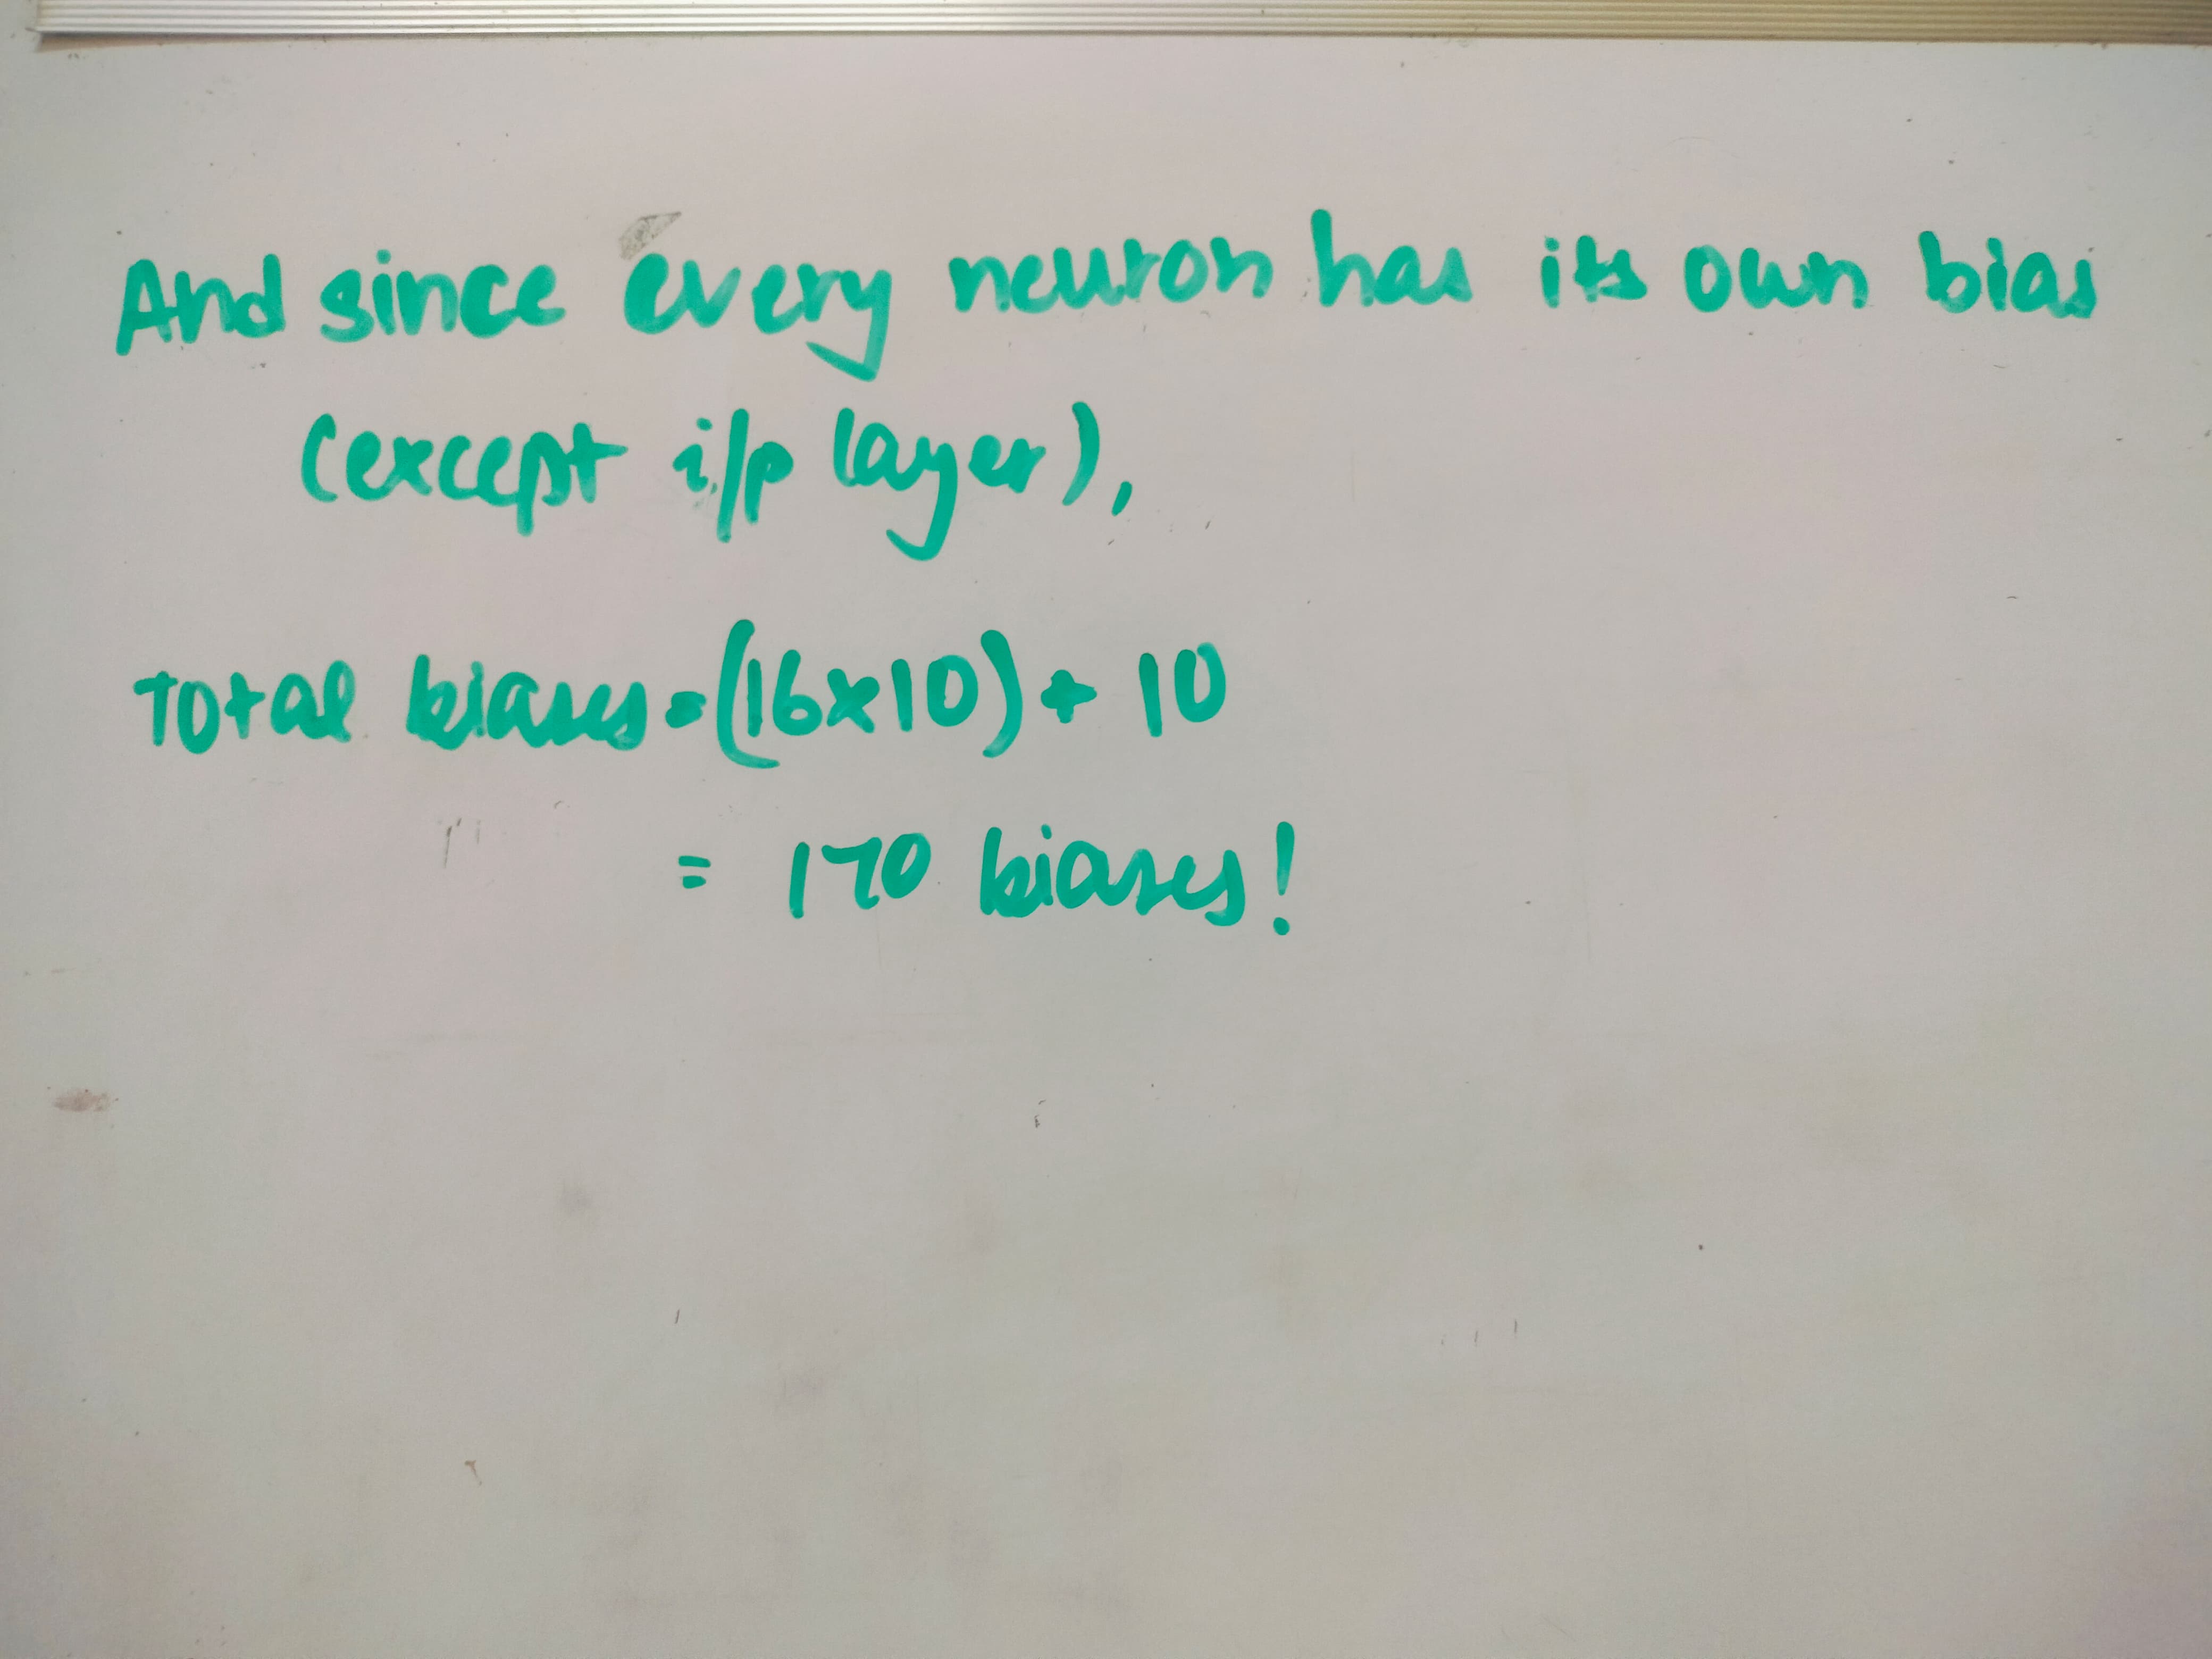 And since every neuron has its own bias
(except i/p layer),
Total biases = (16x10) + 10
= 170 biases!